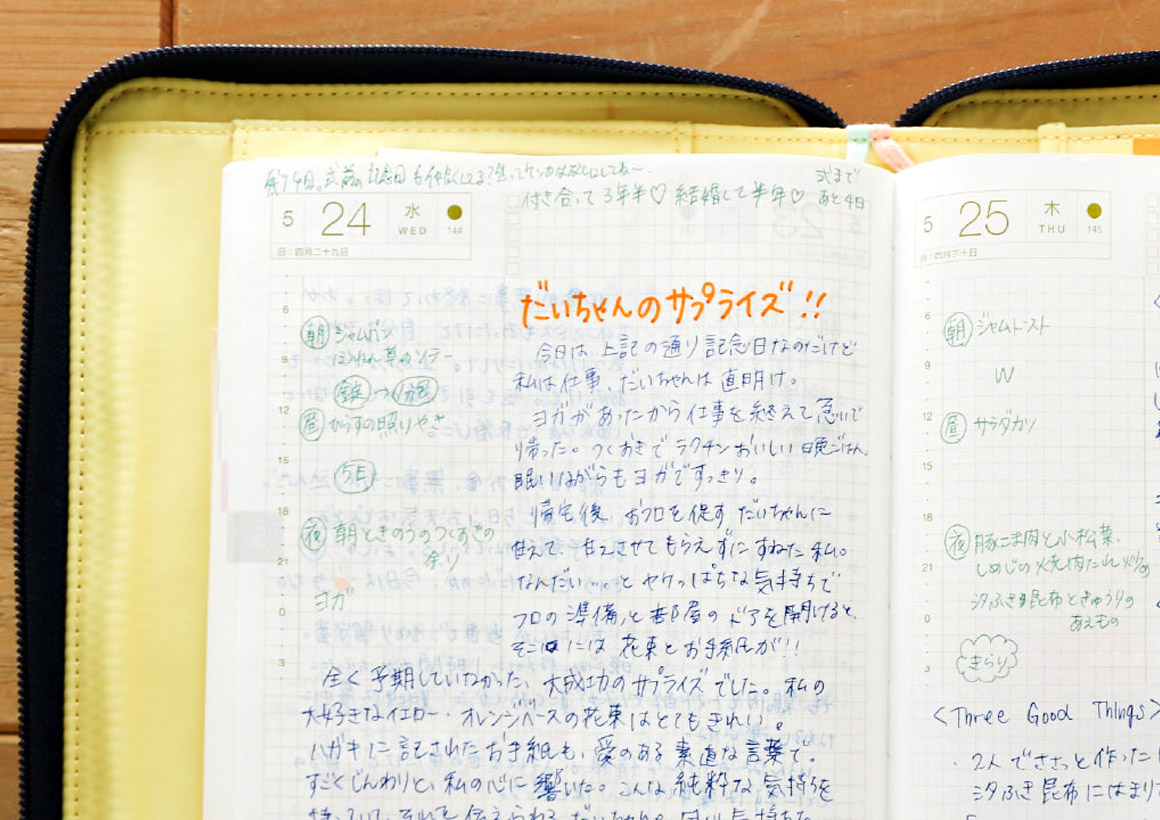 付き合って3年半♡ 結婚して半年♡
式まで
あと4日
5 24 水 WED 144
旧:四月二十九日
だいちゃんのサプライズ!!
今日は上記の通り記念日なのだけど
私は仕事、だいちゃんは直明け。
ヨガがあったから仕事を終えて急いで
帰った。つくおきでラクチンおいしい晩ごはん、
眠いながらもヨガですっきり。
帰宅後、お風呂を促すだいちゃんに
甘えて、甘えさせてもらえずにすねた私。
なんだい…とヤケっぱちな気持ちで
フロの準備、と部屋のドアを開けると、
そこには花束とお手紙が!!
全く予期していなかった、大成功のサプライズでした。私の
大好きなイエロー・オレンジベースの花束はとてもきれい。
ハガキに記されたお手紙も、愛のある素直な言葉で。
すごくじんわりと、私の心に響いた。こんな純粋な気持ちを
6
朝 ジャムパン
ほうれん草のソテー
9
12
昼 の照りやき
15
18
夜 朝ときのうのつくおきの
余り
21
ヨガ
0
3
5 25 木 THU 145
旧:四月三十日
6
朝 ジャムトースト
9
W
12
昼 サラダカツ
15
18
夜 豚こま肉と小松菜、
しめじの焼肉たれ
21
汐ふき昆布ときゅうりの
あえもの
0
3
きらり
<Three Good Things>
・2人でささっと作った
汐ふき昆布にはまり